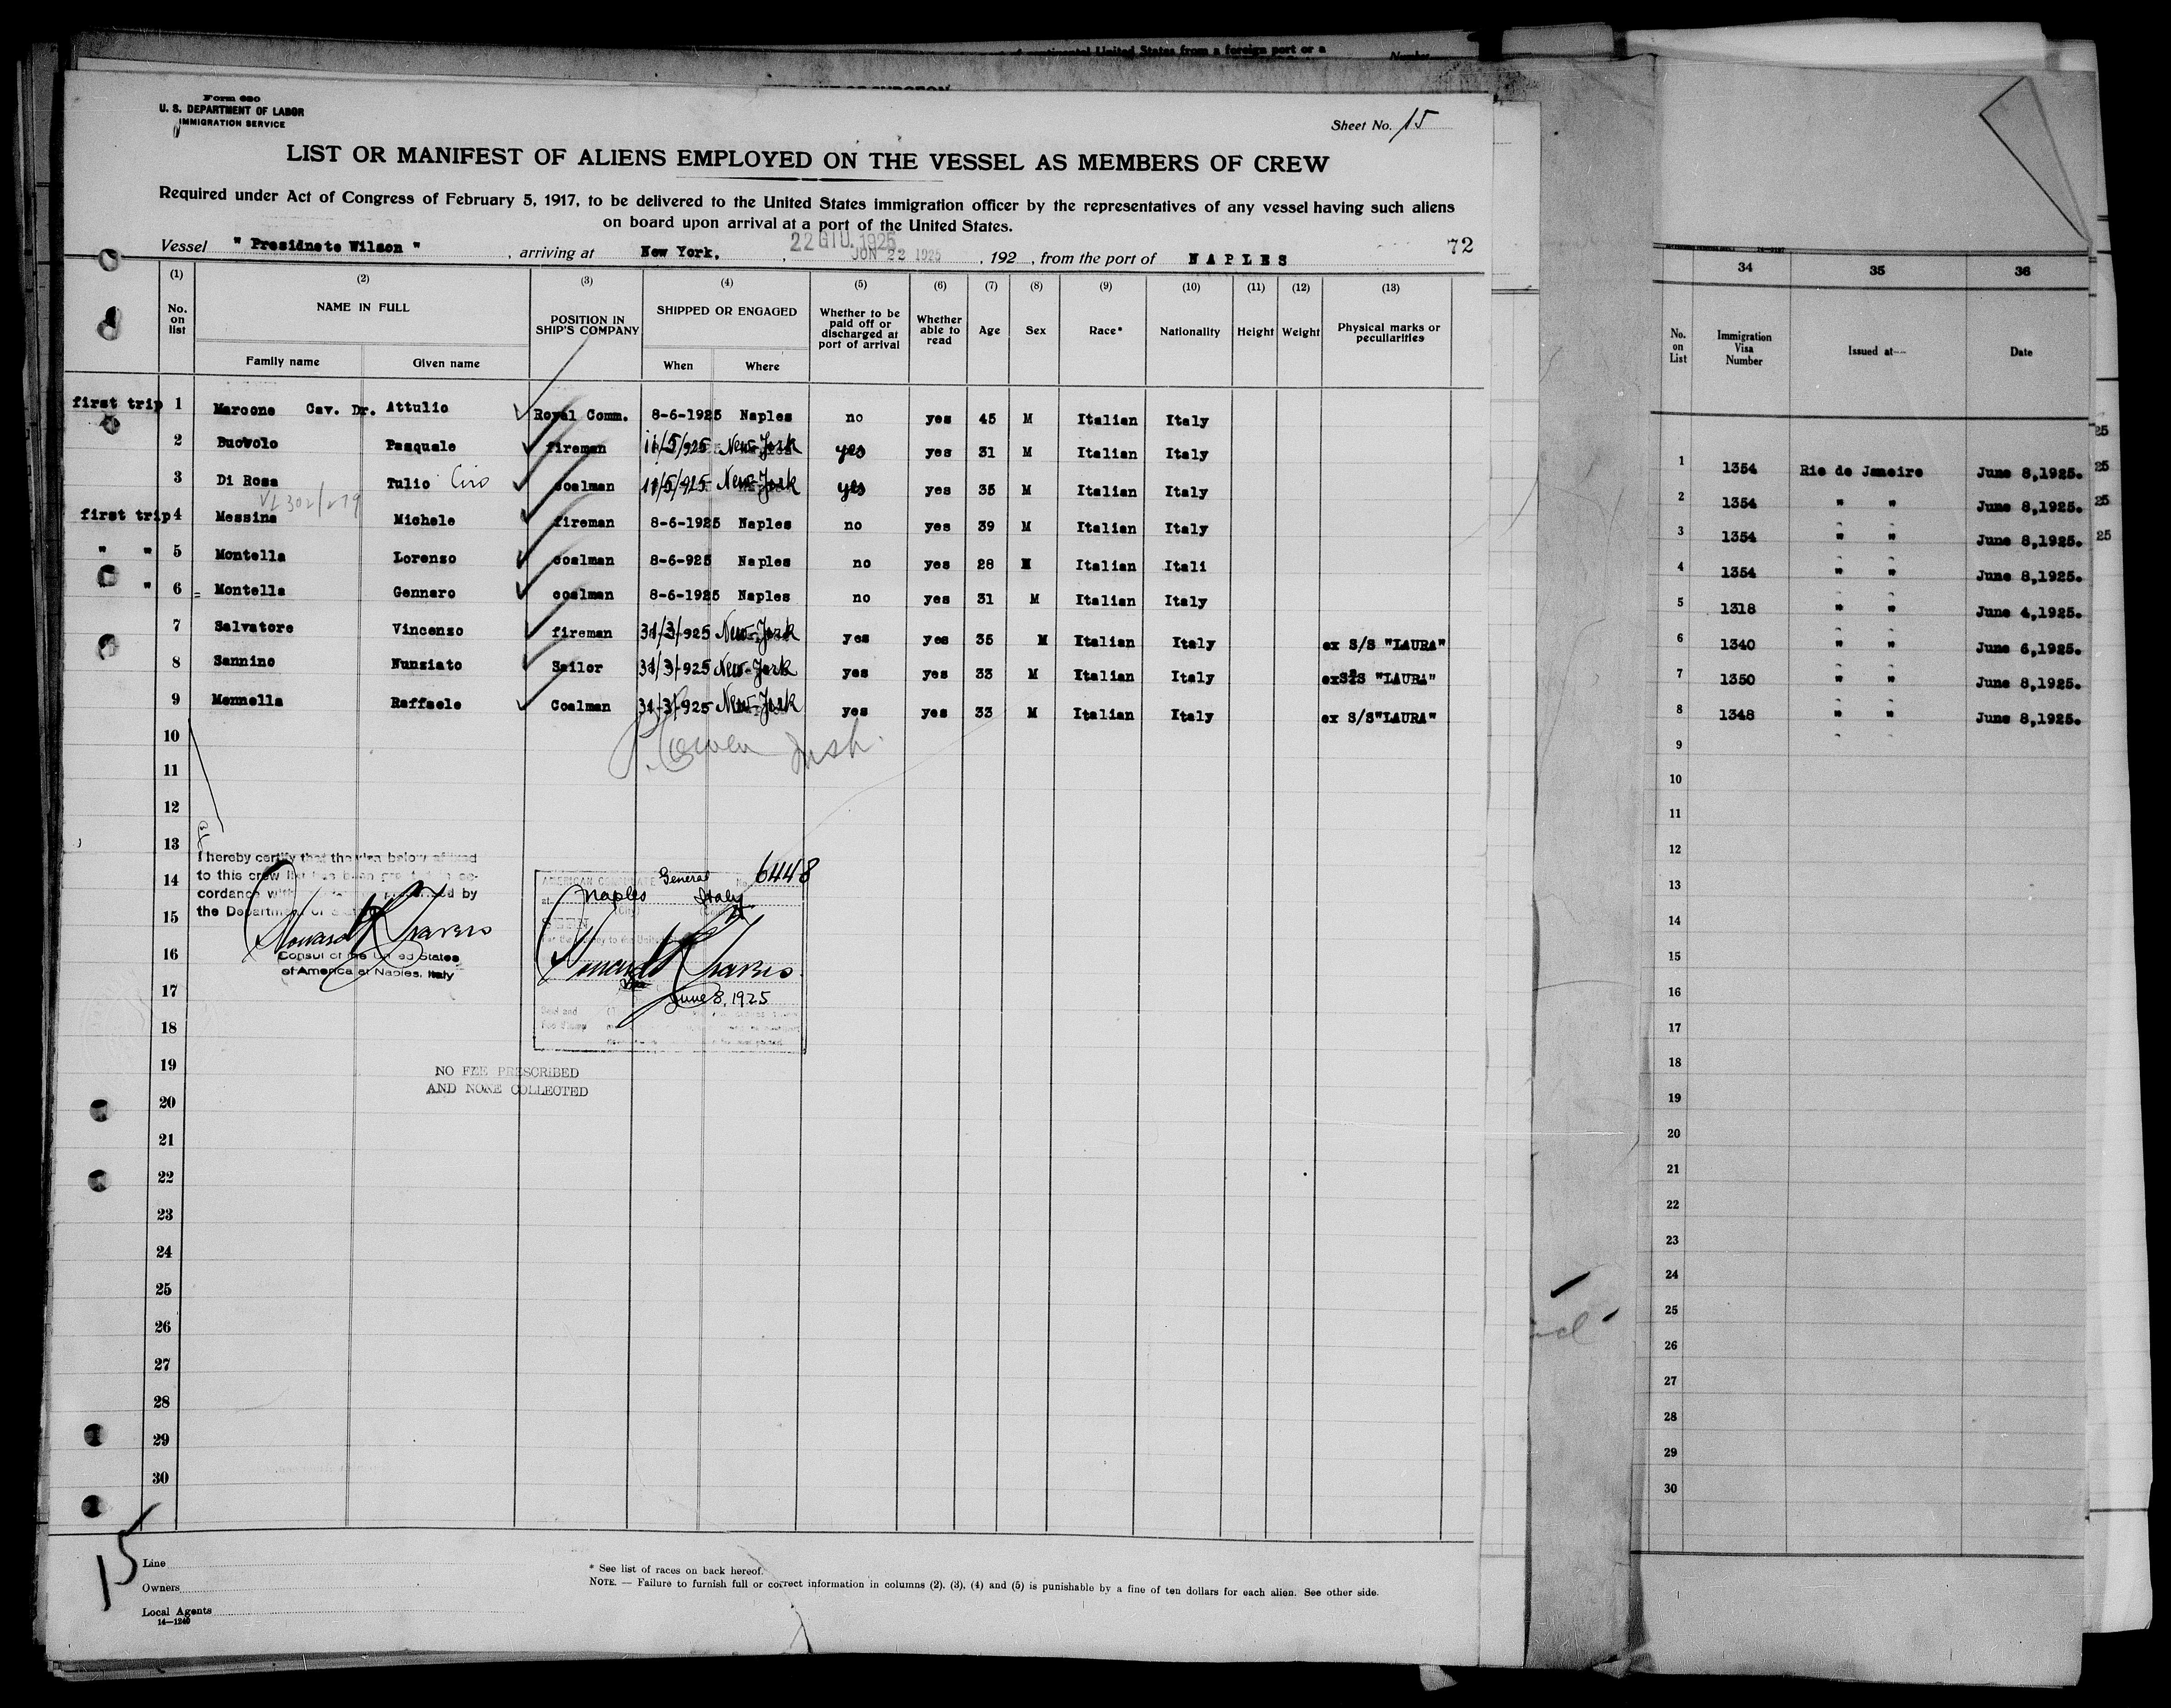 of continental United States from a foreign port or a
Number
Form 680
U. S. DEPARTMENT OF LABOR
IMMIGRATION SERVICE
Sheet No. 15
LIST OR MANIFEST OF ALIENS EMPLOYED ON THE VESSEL AS MEMBERS OF CREW
Required under Act of Congress of February 5, 1917, to be delivered to the United States immigration officer by the representatives of any vessel having such aliens
on board upon arrival at a port of the United States.
Vessel " Presidnete Wilson " , arriving at New York, 22 GIU. 1925 JUN 22 1925 , 192 , from the port of NAPLES 72
(1) (2) (3) (4) (5) (6) (7) (8) (9) (10) (11) (12) (13)
No. on list NAME IN FULL Family name Given name POSITION IN SHIP'S COMPANY SHIPPED OR ENGAGED When Where Whether to be paid off or discharged at port of arrival Whether able to read Age Sex Race* Nationality Height Weight Physical marks or peculiarities
first trip 1 Marcone Cav. Dr. Attulio Royal Comm. 8-6-1925 Naples no yes 45 M Italian Italy
2 Buovolo Pasquale fireman 11/5/925 New-York yes yes 31 M Italian Italy
3 Di Rosa Tulio Ciro Coalman 11/5/925 New-York yes yes 35 M Italian Italy
first trip 4 Messina Michele fireman 8-6-1925 Naples no yes 39 M Italian Italy
" " 5 Montella Lorenzo coalman 8-6-925 Naples no yes 28 M Italian Itali
" 6 Montella Gennaro coalman 8-6-1925 Naples no yes 31 M Italian Italy
7 Salvatore Vincenzo fireman 31/3/925 New-York yes yes 35 M Italian Italy ex S/S "LAURA"
8 Sannino Nunziato Sailor 31/3/925 New-York yes yes 33 M Italian Italy exS/S "LAURA"
9 Mennella Raffaele Coalman 31/3/925 New-York yes yes 33 M Italian Italy ex S/S"LAURA"
10
11
12
13
14
15
16
17
18
19
20
21
22
23
24
25
26
27
28
29
30
I hereby certify that the visa below affixed
to this crew list has been granted in ac-
cordance with
by
the Department of State
Consul of the United States
of America at Naples, Italy
AMERICAN CONSULATE General No. 6448
at Naples Italy
(City)
SEEN
June 8, 1925
NO FEE PRESCRIBED
AND NONE COLLECTED
15
Line
Owners
Local Agents
14—1240
* See list of races on back hereof.
NOTE. — Failure to furnish full or correct information in columns (2), (3), (4) and (5) is punishable by a fine of ten dollars for each alien. See other side.
34 35 36
No. on List Immigration Visa Number Issued at— Date
25
1 1354 Rio de Janeiro June 8,1925. 25
2 1354 " " June 8,1925. 25
3 1354 " " June 8,1925. 25
4 1354 " " June 8,1925.
5 1318 " " June 4,1925.
6 1340 " " June 6,1925.
7 1350 " " June 8,1925.
8 1348 " " June 8,1925.
9
10
11
12
13
14
15
16
17
18
19
20
21
22
23
24
25
26
27
28
29
30